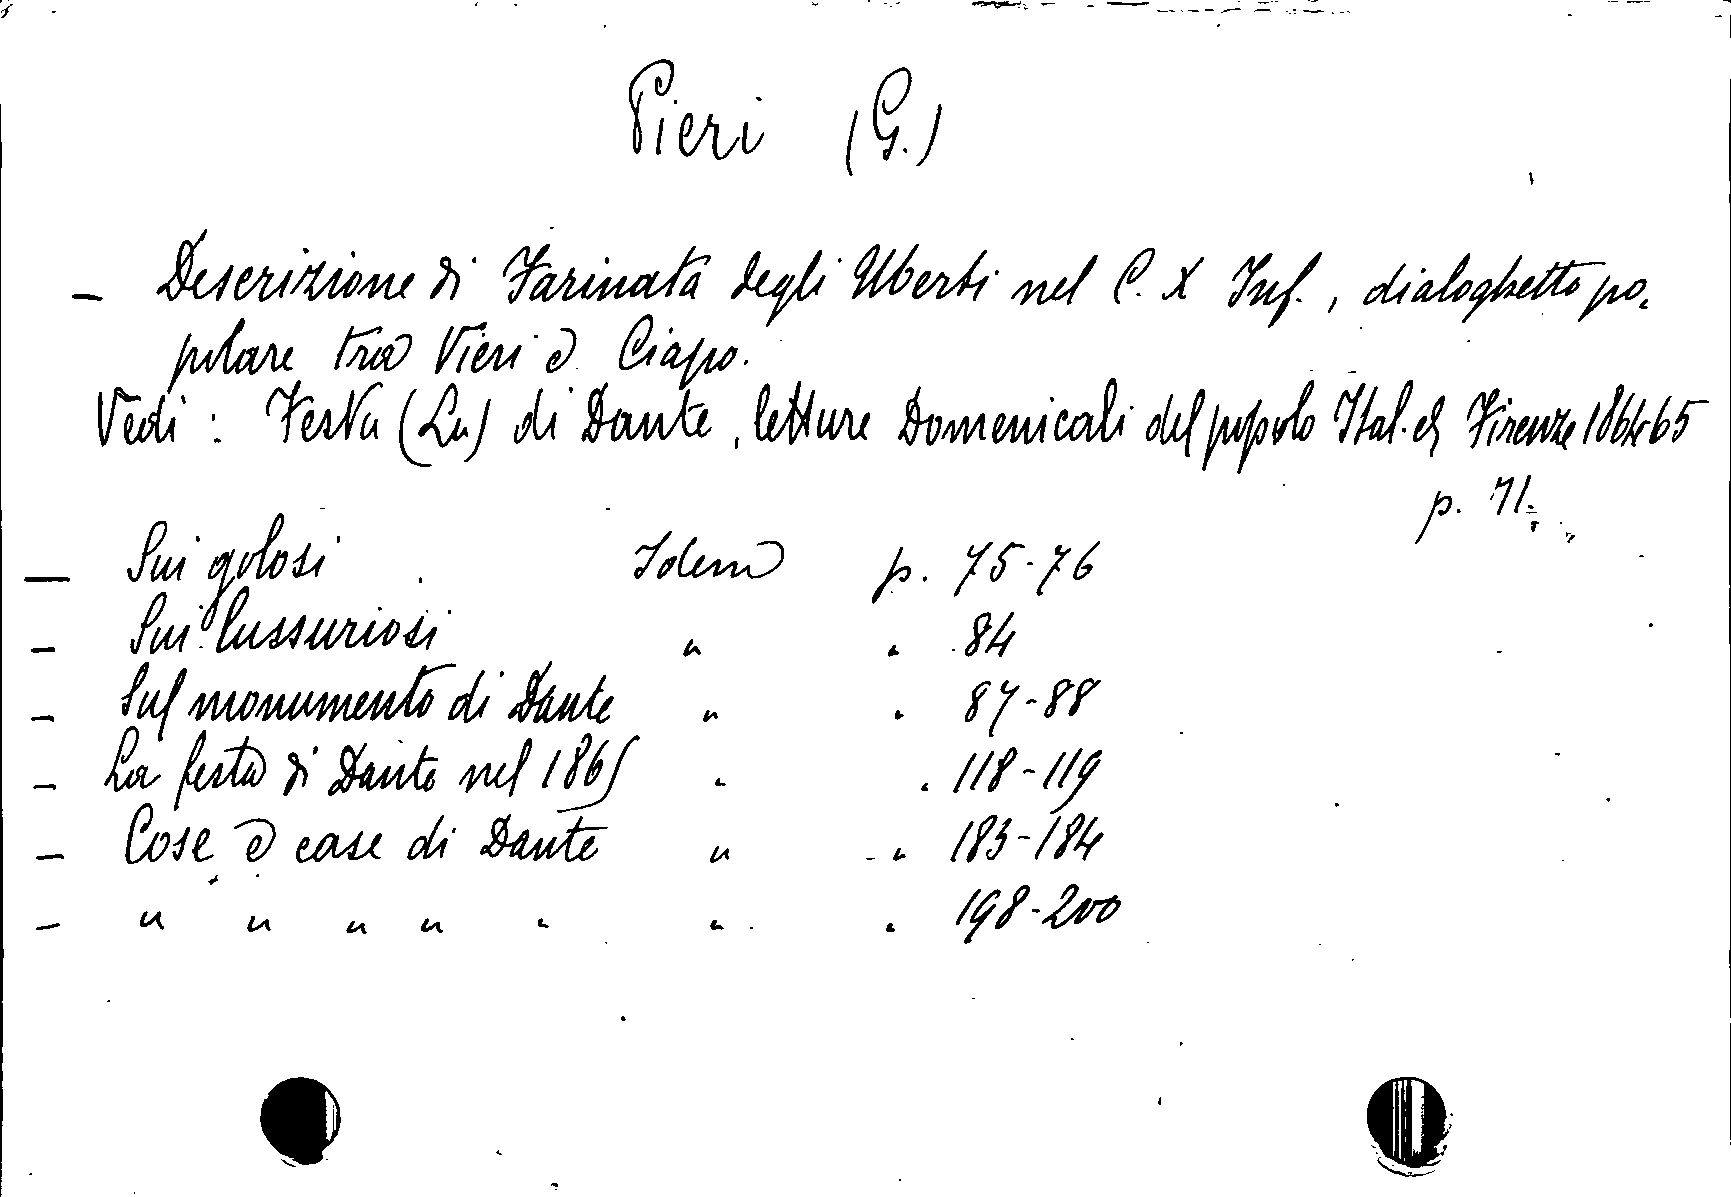 Pieri (G.)
— Descrizione di Farinata degli Uberti nel C. X Inf., dialoghetto po-
polare tra Vieri e Ciapo.
Vedi: Festa (La) di Dante, letture Domenicali del popolo Ital. Firenze 1864-65
p. 71.
— Sui golosi Idem p. 75-76
— Sui lussuriosi " " 84
— Sul monumento di Dante " " 87-88
— La festa di Dante nel 1865 " " 118-119
— Cose e case di Dante " " 183-184
— " " " " " " " 198-200